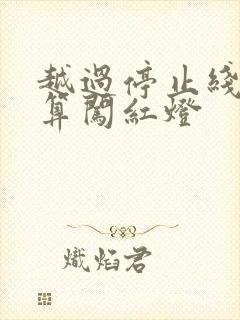 越過停止綫
算闖紅燈
熾焰君